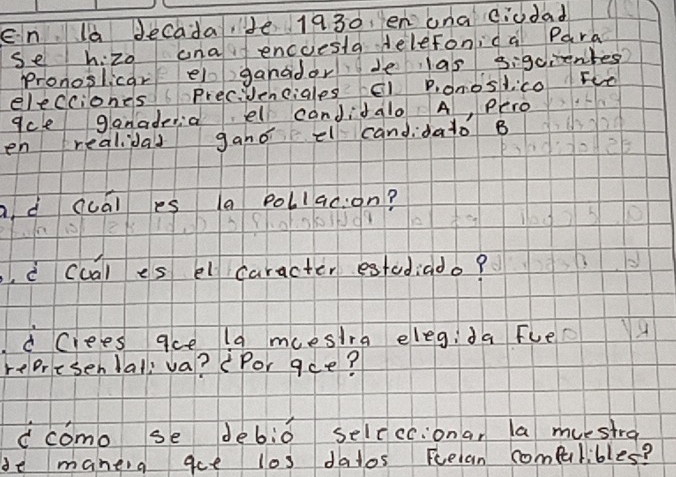 En la decada de 1930 en una ciudad
se hizo una encuesta telefonica Para
Pronosticar el ganador de las siguientes
elecciones Precidenciales El Pronostico Fue
que ganaderia el candidato A, Pero
en realidad gano el candidato B
a, ¿ cuál es la Pollacion?
b, ¿ cuál es el caracter estudiado?
¿ Crees que la muestra elegida Fue
representativa? ¿Por que?
¿ cómo se debió seleccionar la muestra
de manera que los datos Fueran compatibles?